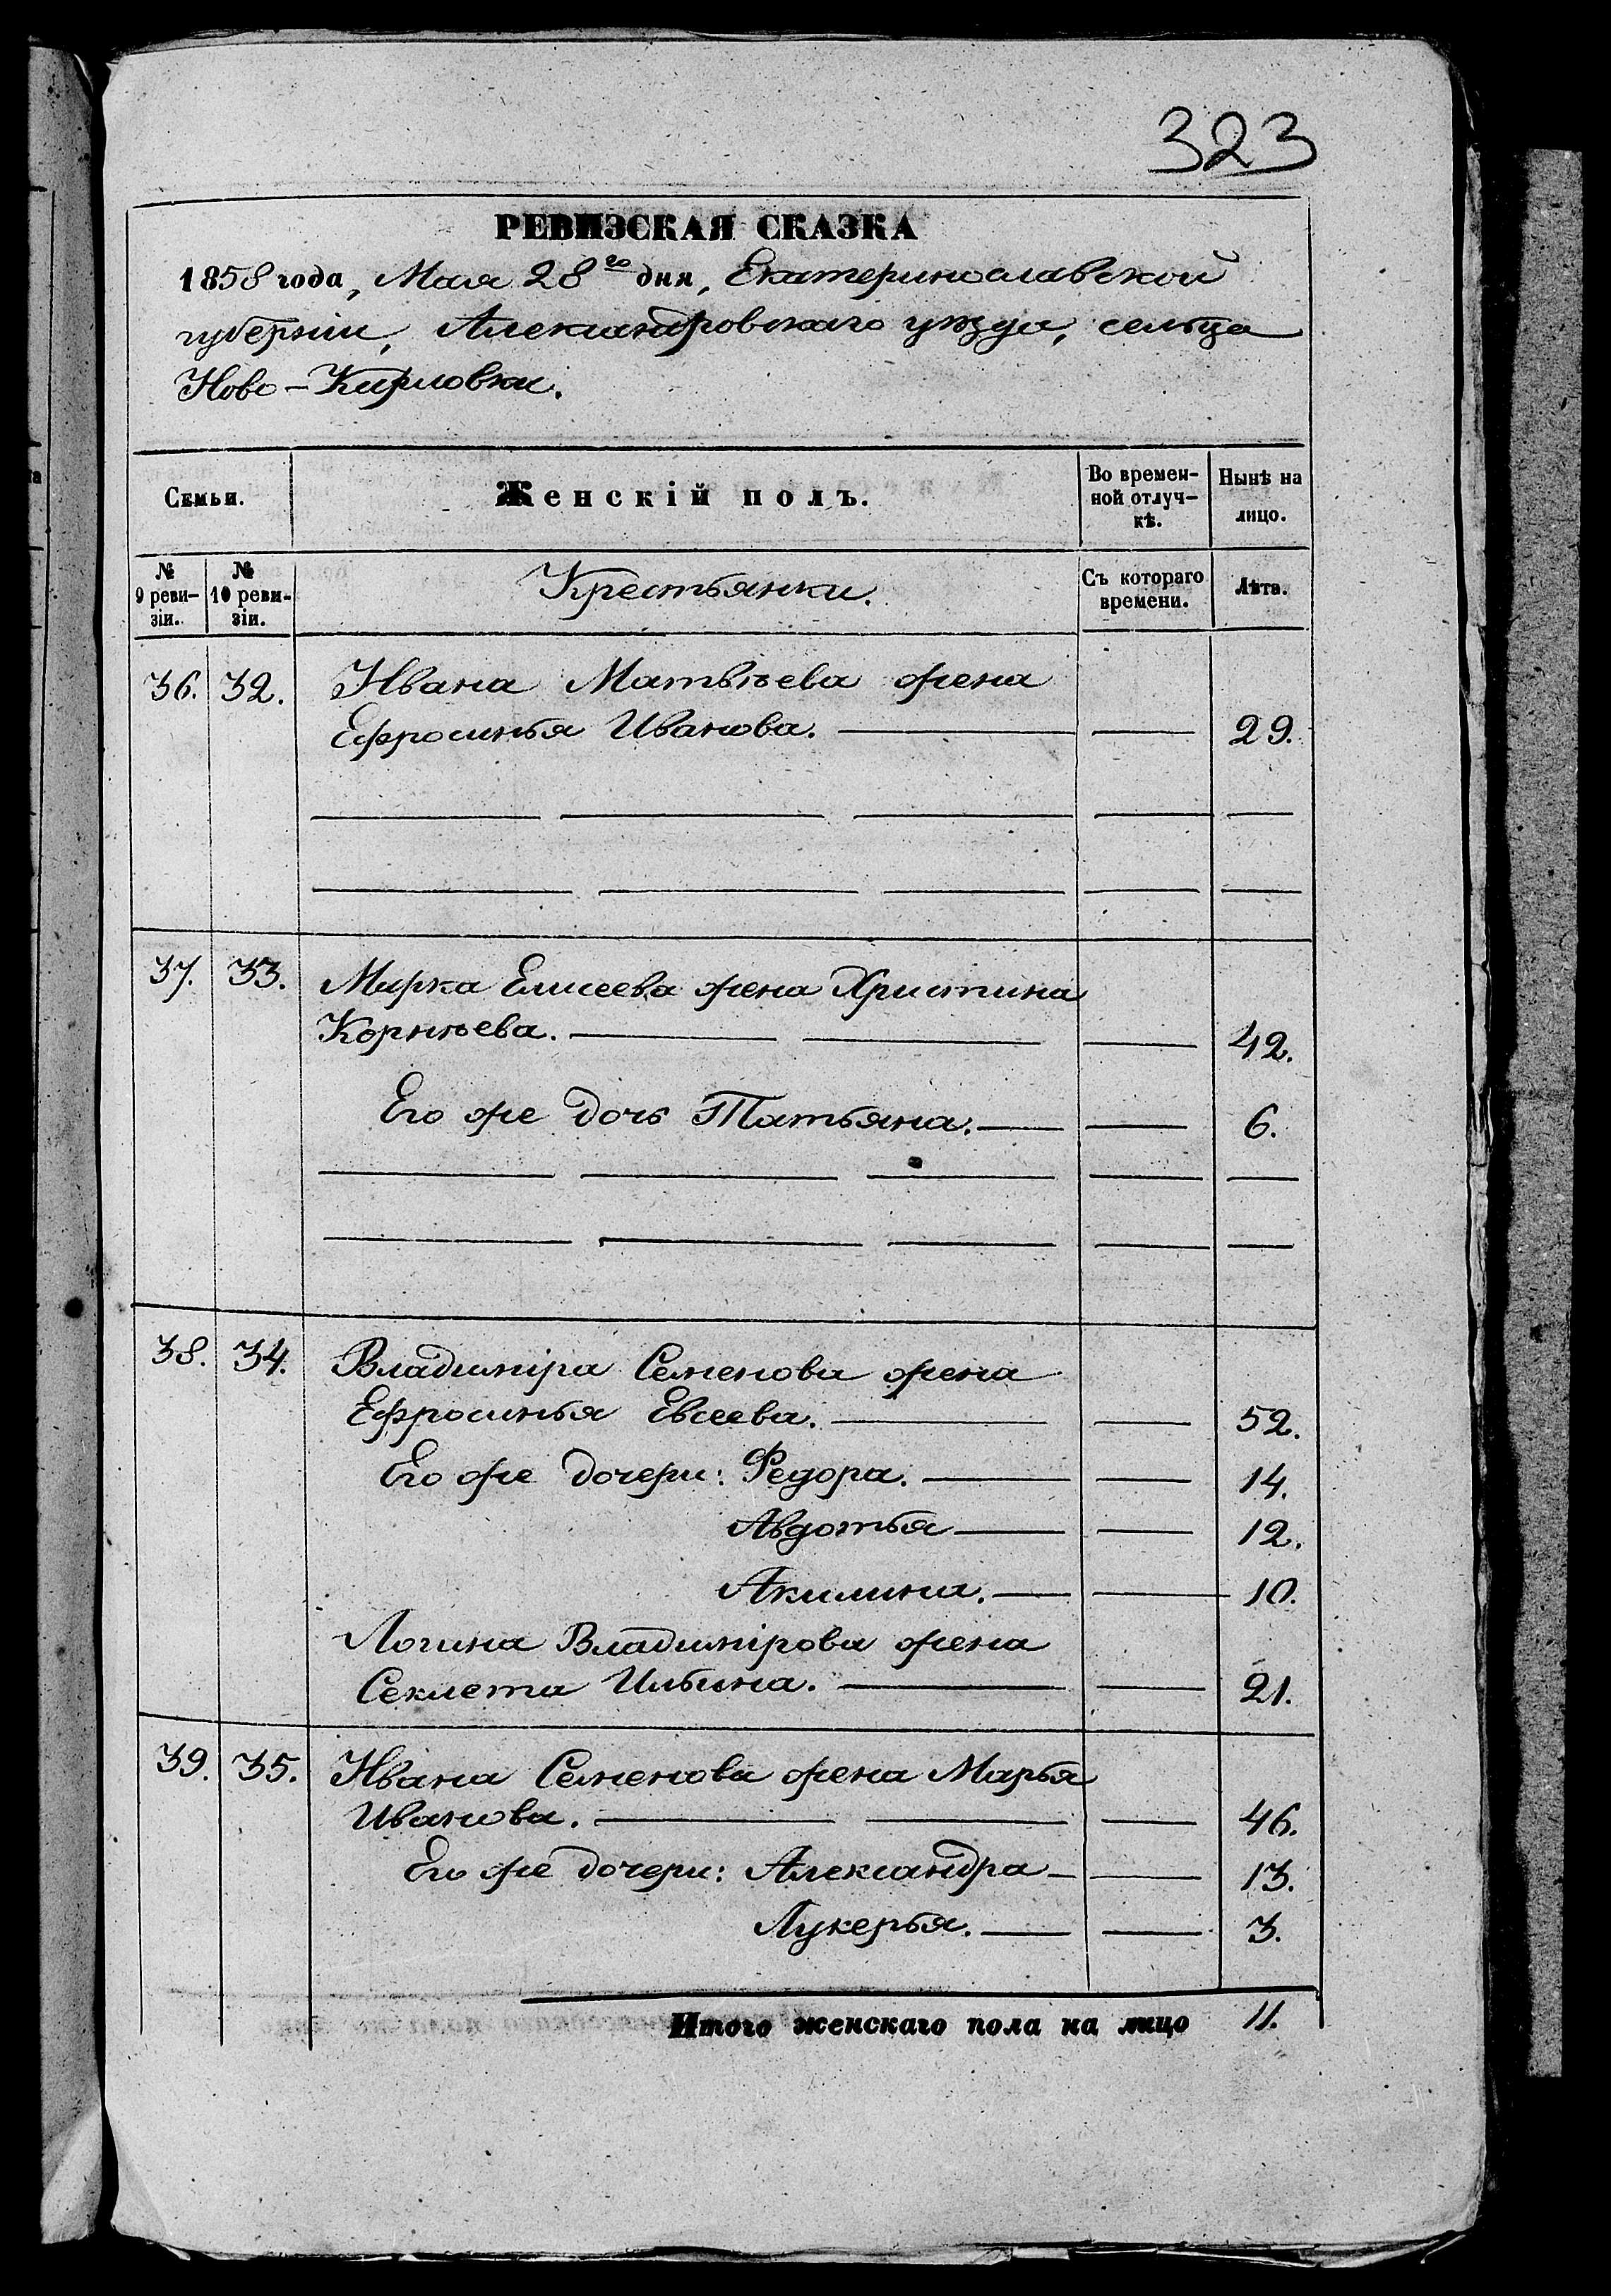 323
РЕВИЗСКАЯ СКАЗКА
1858 года, Мая 28го дня, Екатеринославской
губерніи, Александровскаго уѣзда, сельца
Ново-Кирловки.
Семьи.
Женскій полъ.
Во времен-
ной отлуч-
кѣ.
Нынѣ на
лицо.
№
9 реви-
зіи.
№
10 реви-
зіи.
Крестьянки.
Съ котораго
времени.
Лѣта.
36. 32. Ивана Матвѣева жена
Ефросинья Иванова. 29.
37. 33. Марка Елисеева жена Христина
Корнѣева. 42.
Его же дочь Татьяна. 6.
38. 34. Владиміра Семенова жена
Ефросинья Евсеева. 52.
Его же дочери: Федора. 14.
Авдотья 12.
Акилина. 10.
Логина Владимірова жена
Секлета Ильина. 21.
39. 35. Ивана Семенова жена Марья
Иванова. 46.
Его же дочери: Александра 13.
Лукерья. 3.
Итого женскаго пола на лицо 11.